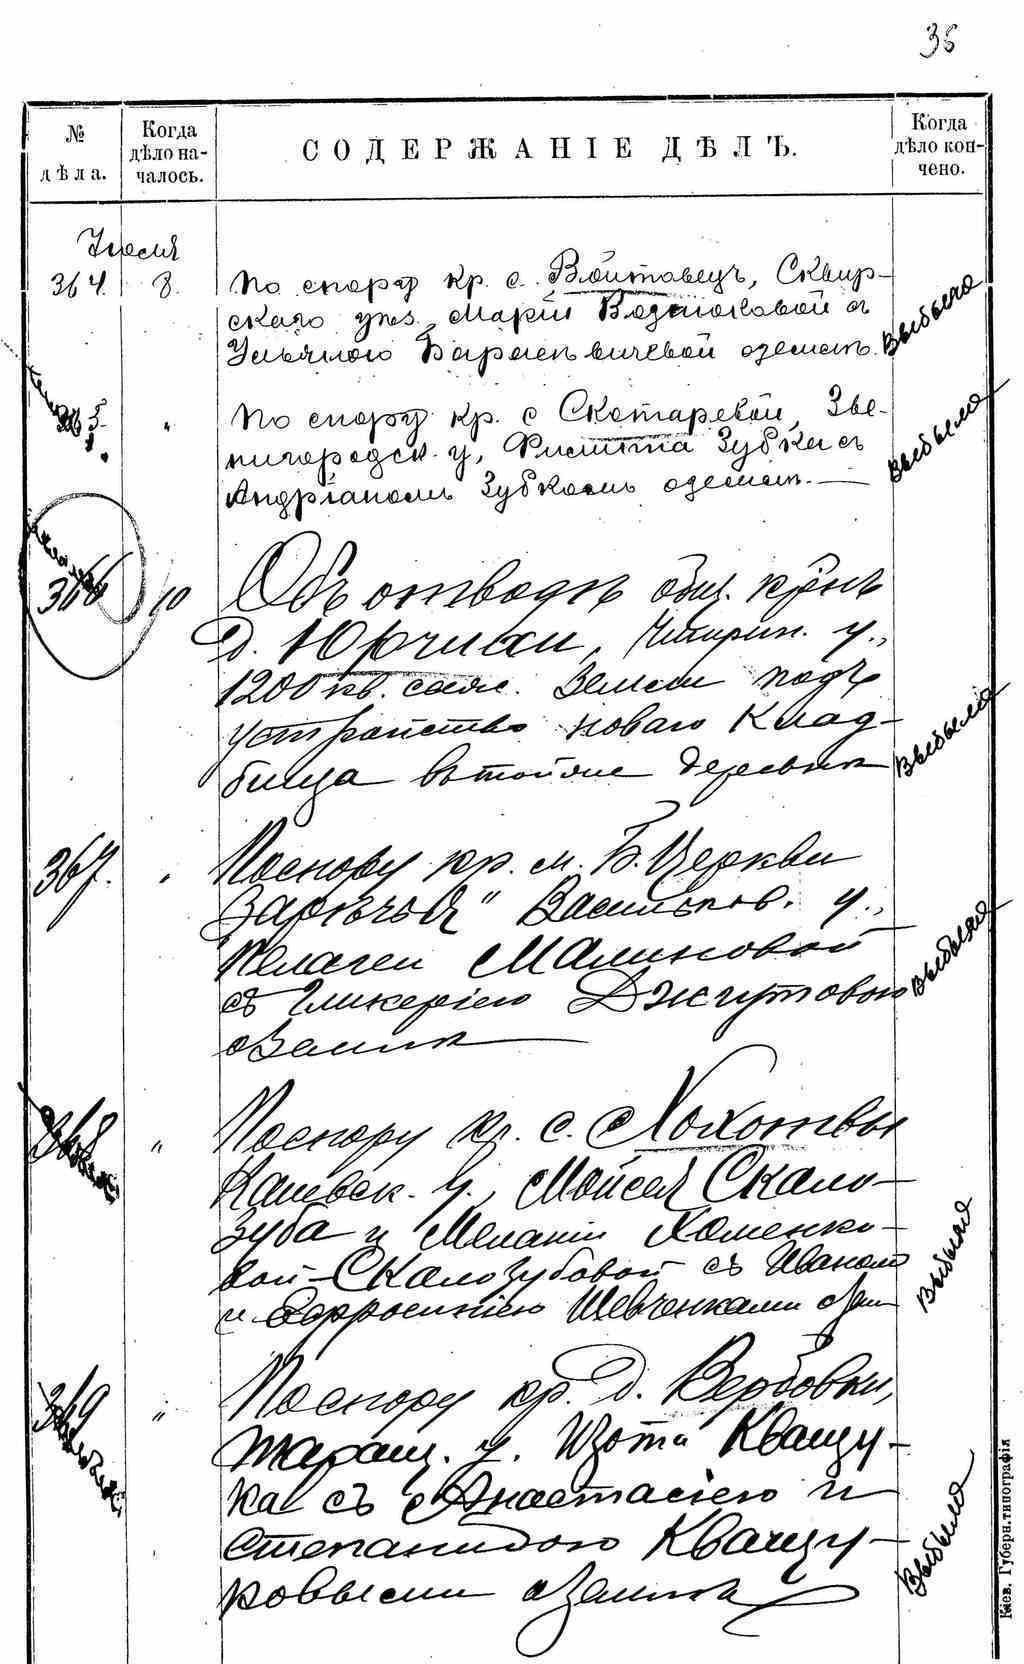 35
№ дѣла.
Когда дѣло началось.
СОДЕРЖАНІЕ ДѢЛЪ.
Когда дѣло кончено.
Іюля
364. 8. По спору кр. с. Войтовецъ, Сквир-
скаго уѣз. Маріи Воднюковой съ
Ульяною о землѣ. Выбыло
365. " По спору кр. с Скотаревой, Зве-
нигородск. у,  Зубка съ
Андріаномъ Зубкомъ о землѣ. — Выбыло
366 10 Объ отводѣ общ. крѣнъ
д. Юрчихи, Чигирин. у.,
1200 кв. саж. земли подъ
устройство новаго клад-
бища въ той же деревнѣ Выбыло
367. " По спору кр. м. Б. Церкви
"Зарѣчья" Васильков. у.,
Пелагеи Малиновой
съ Гликеріею Джгутовою
о землѣ — Выбыло
368 " По спору кр. с. Хохотвы
Каневск. у., Мойсея Скало-
зуба и Меланіи Хоменко-
вой-Скалозубовой съ Иваномъ
и Ефросиніею Шевченками о зем Выбыло
369 " По спору кр. д. Вербовки,
Таращ. у. Изота Кващу-
ка съ Анастасіею и
Степанидою Кващу-
ковыми о землѣ Выбыло
Кіев. Губерн. типографія